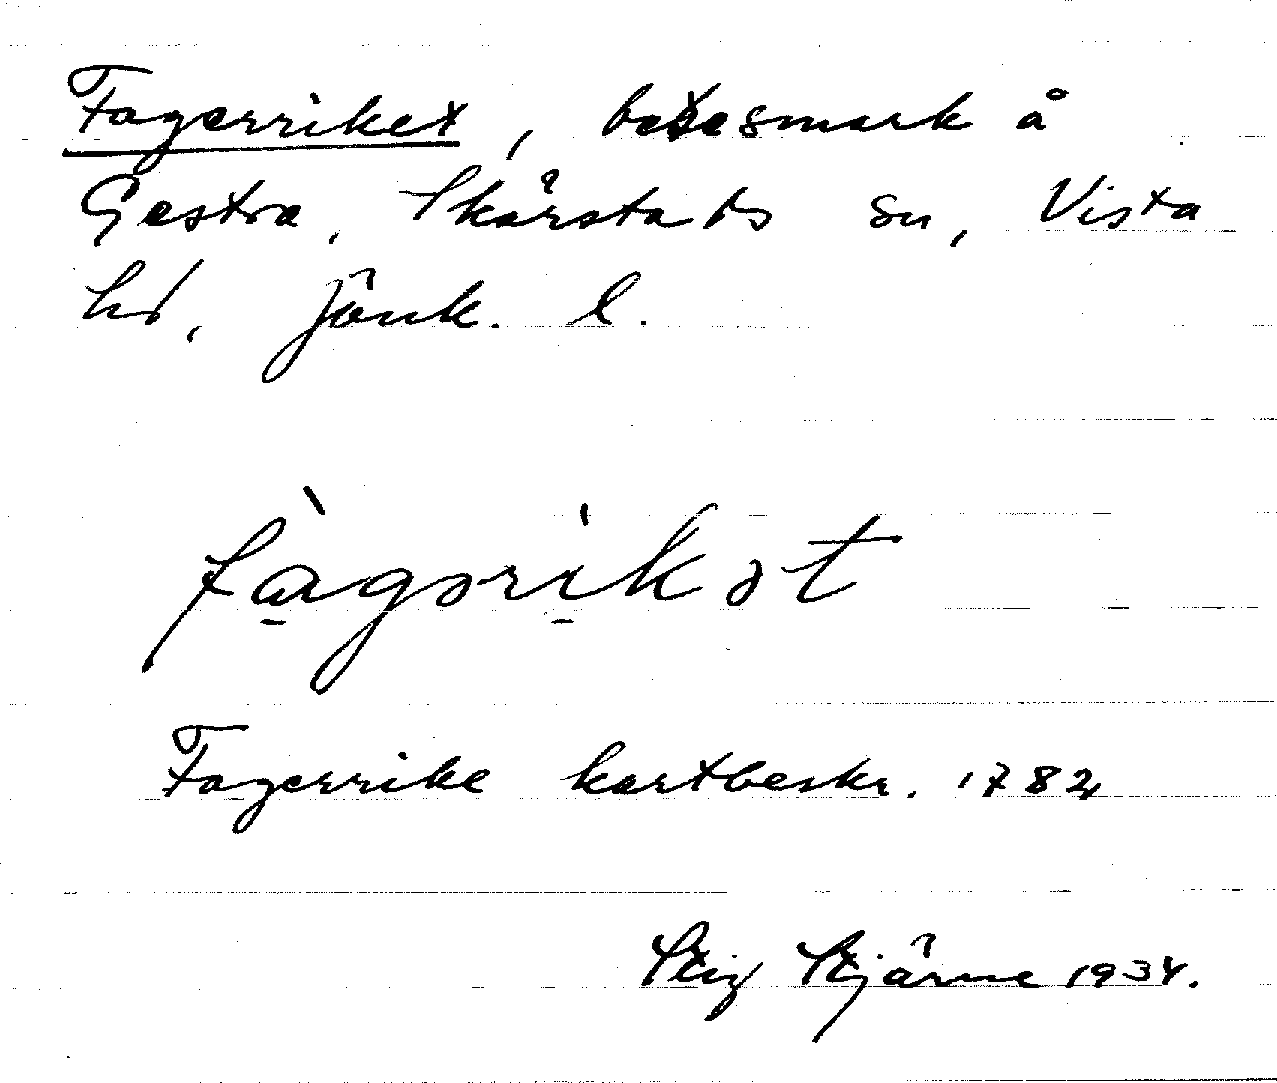 Fagerriket, betesmark å
Gestra, Skärstads sn, Vista
hd, Jönk. l.
fàgəri̱kət
Fagerrike kartbeskr. 1782
Stig Stjärne 1934.